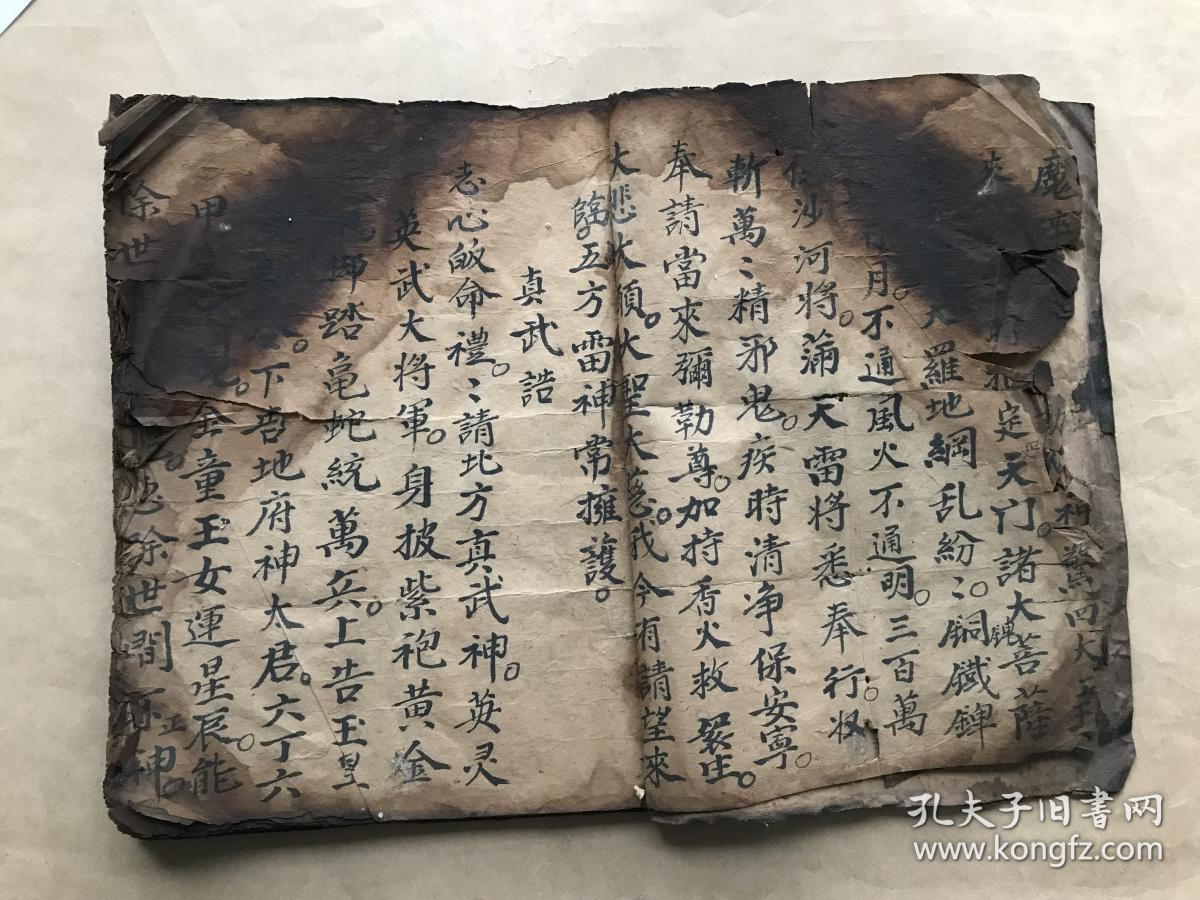 魔
神驚四大
定天门。諸大菩薩
羅地綱乱紛〻。銅鐵鎚
月。不通風火不通明。三百萬
沙河將。滿天雷將悉奉行。收
斬萬〻精邪鬼。疾時清净保安寧。
奉請當來彌勒尊。加持香火救眾生。
大悲大願。大聖大慈。我今有請望來
臨。五方雷神常擁護。
真武誥
志心皈命禮。〻請北方真武神。英灵
英武大将軍。身披紫袍黃金
踏龟蛇統萬兵。上告玉皇
下告地府神太君。六丁六
甲 金童玉女運星辰。能
除世 除世間不正神。
孔夫子旧书网
www.kongfz.com